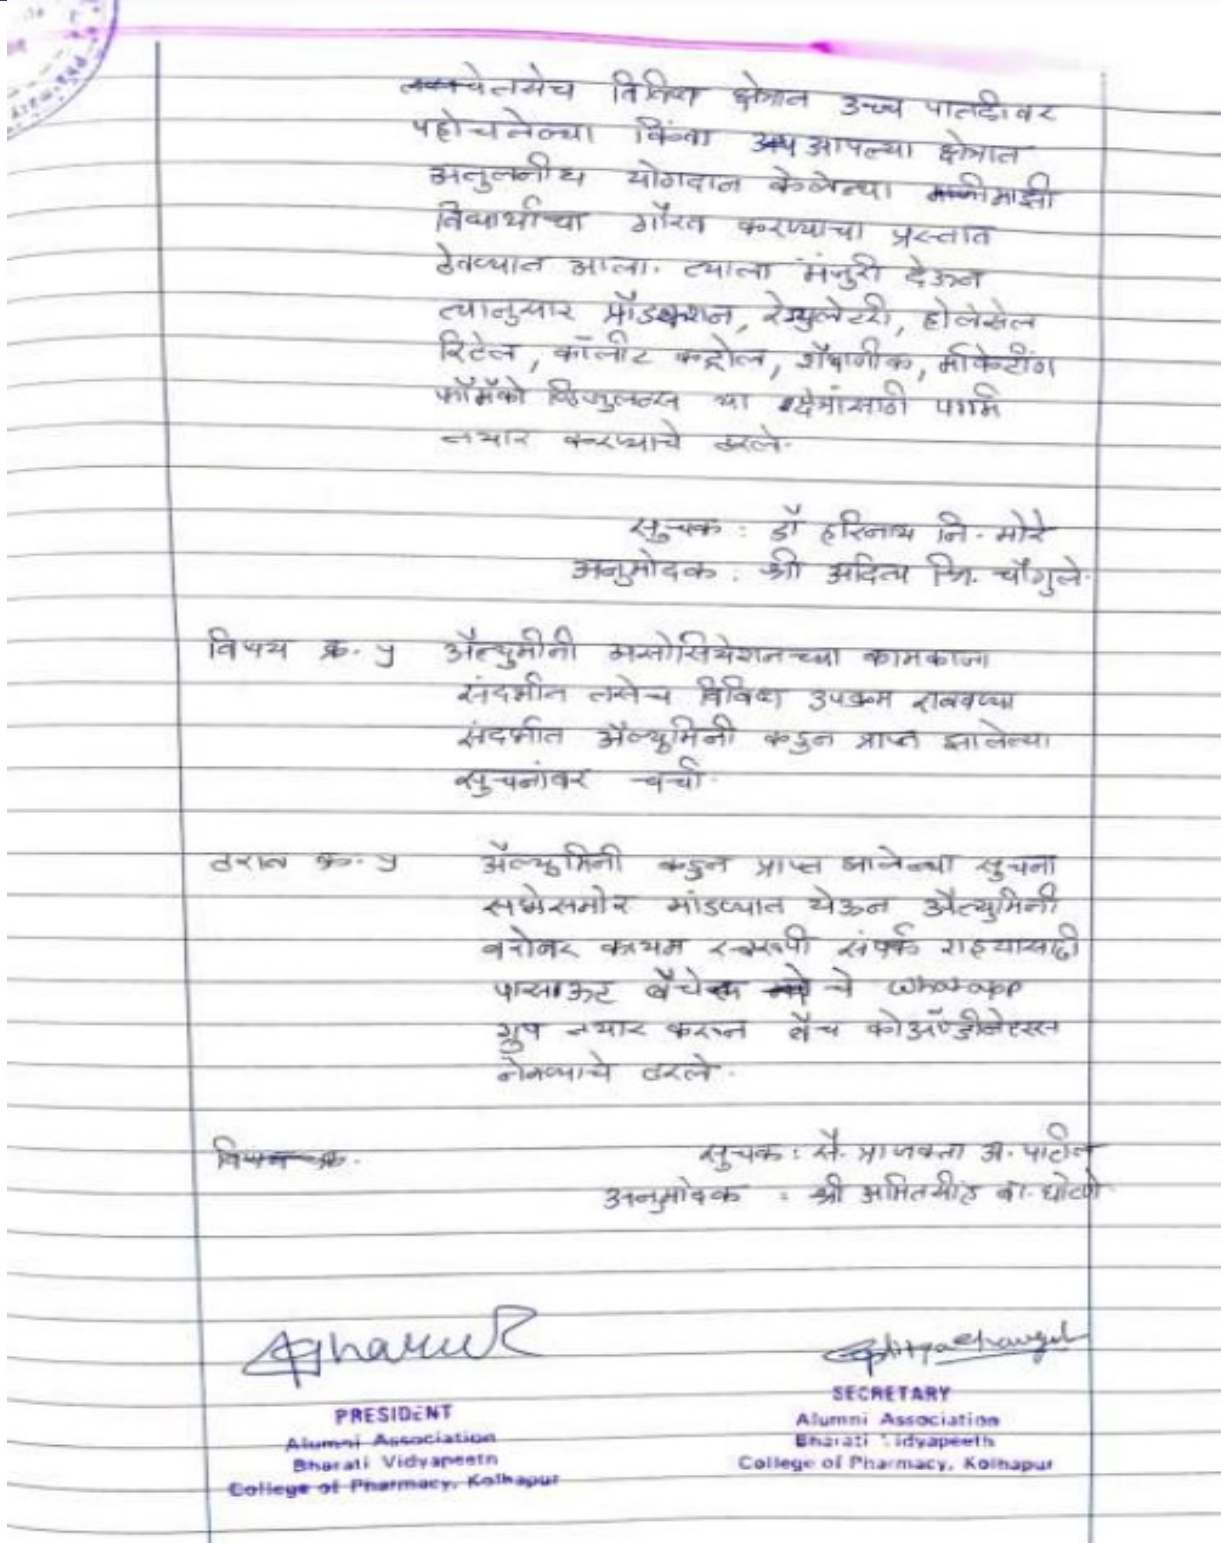 तसेच विविध क्षेत्रात उच्च पातळीवर
पहोचलेल्या किंवा आपल्या क्षेत्रात
अतुलनीय योगदान केलेल्या माजी
विद्यार्थ्यांचा गौरव करण्याचा प्रस्ताव
ठेवण्यात आला. त्याला मंजुरी देऊन
त्यानुसार प्रॉडक्शन, रेग्युलेटरी, होलसेल
रिटेल, कॉलीटी कंट्रोल, शैक्षणीक, मार्केटींग
फॉर्मेको व्हिजुलन्स या क्षेत्रांसाठी फॉर्म
तयार करण्याचे ठरले.
सुचक : डॉ हरिनाथ नि. मोरे
अनुमोदक : श्री अदित्य त्रि. चौगुले.
विषय क्र. ५ अॅल्युमीनी असोसियेशनच्या कामकाजा
संदर्भात तसेच विविध उपक्रम राबवण्या
संदर्भात अॅल्युमिनी कडुन प्राप्त झालेल्या
सुचनांवर चर्चा.
ठराव क्र. ५ अॅल्युमिनी कडुन प्राप्त झालेल्या सुचना
सभेसमोर मांडण्यात येऊन अॅल्युमिनी
बरोबर कायम स्वरूपी संपर्क राहण्यासाठी
पासआऊट बॅचेस चे Whatsapp
ग्रुप तयार करून बॅच कोऑर्डीनेटरस
नेमण्याचे ठरले.
विषय क्र. सुचक : सौ. प्राजक्ता अ. पाटील
अनुमोदक : श्री अमितसींह बा. घोटणे
PRESIDENT
Alumni Association
Bharati Vidyapeeth
College of Pharmacy, Kolhapur
SECRETARY
Alumni Association
Bharati Vidyapeeth
College of Pharmacy, Kolhapur